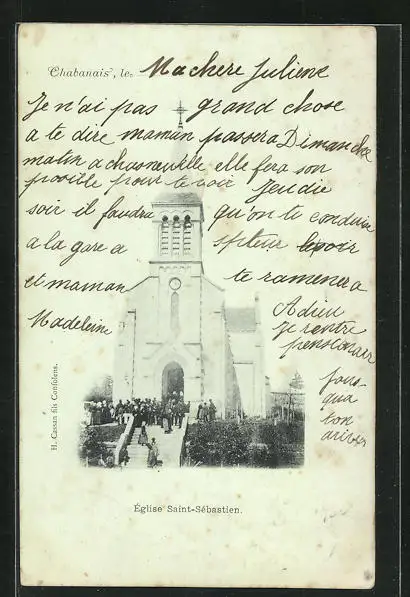 Chabanais, le Machere Juliene
Je n'ai pas grand chose
a te dire maman passera Dimanche
matin a chasneuille elle fera son
posible pour te voir Jeudie
soir il foudra qu'on te conduise
a la gare a 7 heure le soir
et maman te ramenera
Madeleine
Adieu
Je rentre
pensionaer
jous-
qua
ton
arivee
H. Cassan fils Confolens.
Église Saint-Sébastien.